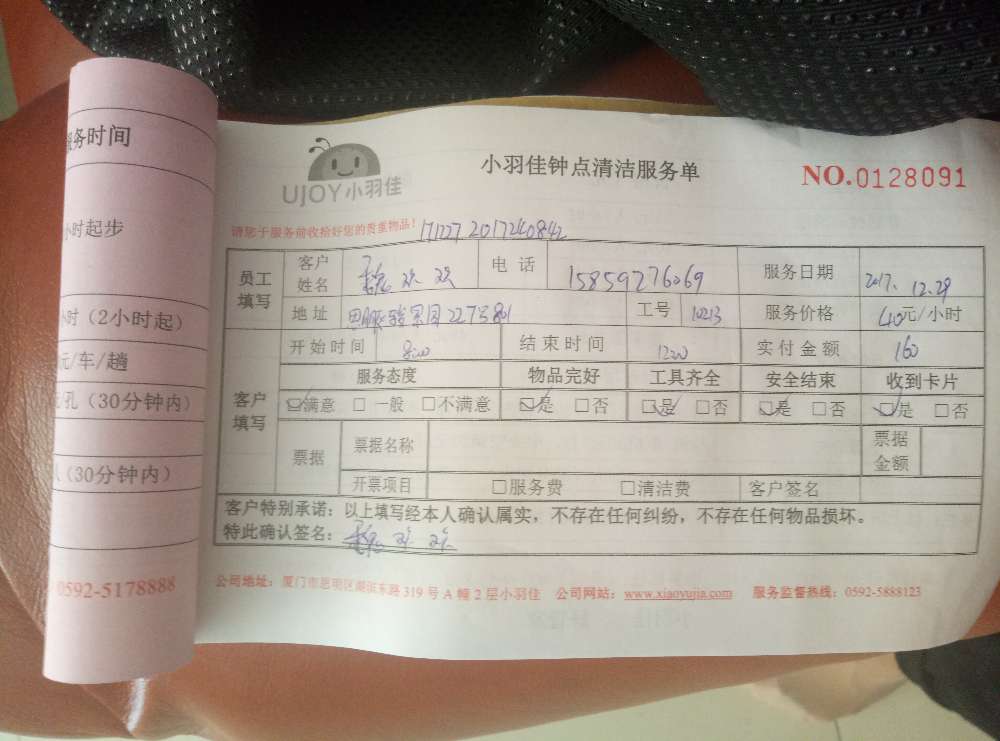 服务时间
小时起步
小时（2小时起）
元/车/趟
孔（30分钟内）
（30分钟内）
0592-5178888
UJOY小羽佳
小羽佳钟点清洁服务单
NO.0128091
请您于服务前收拾好您的贵重物品！
员工填写
客户姓名
电话 15859276069
服务日期 2017.12.29
地址
工号 10213
服务价格 40元/小时
开始时间 8:00
结束时间 1200
实付金额 160
客户填写
服务态度 物品完好 工具齐全 安全结束 收到卡片
☑满意 □一般 □不满意 ☑是 □否 ☑是 □否 ☑是 □否 ☑是 □否
票据
票据名称
票据金额
开票项目 □服务费 □清洁费 客户签名
客户特别承诺：以上填写经本人确认属实，不存在任何纠纷，不存在任何物品损坏。
特此确认签名：
公司地址：厦门市思明区湖滨东路319号A幢2层小羽佳 公司网站：www.xiaoyujia.com 服务监督热线：0592-5888123